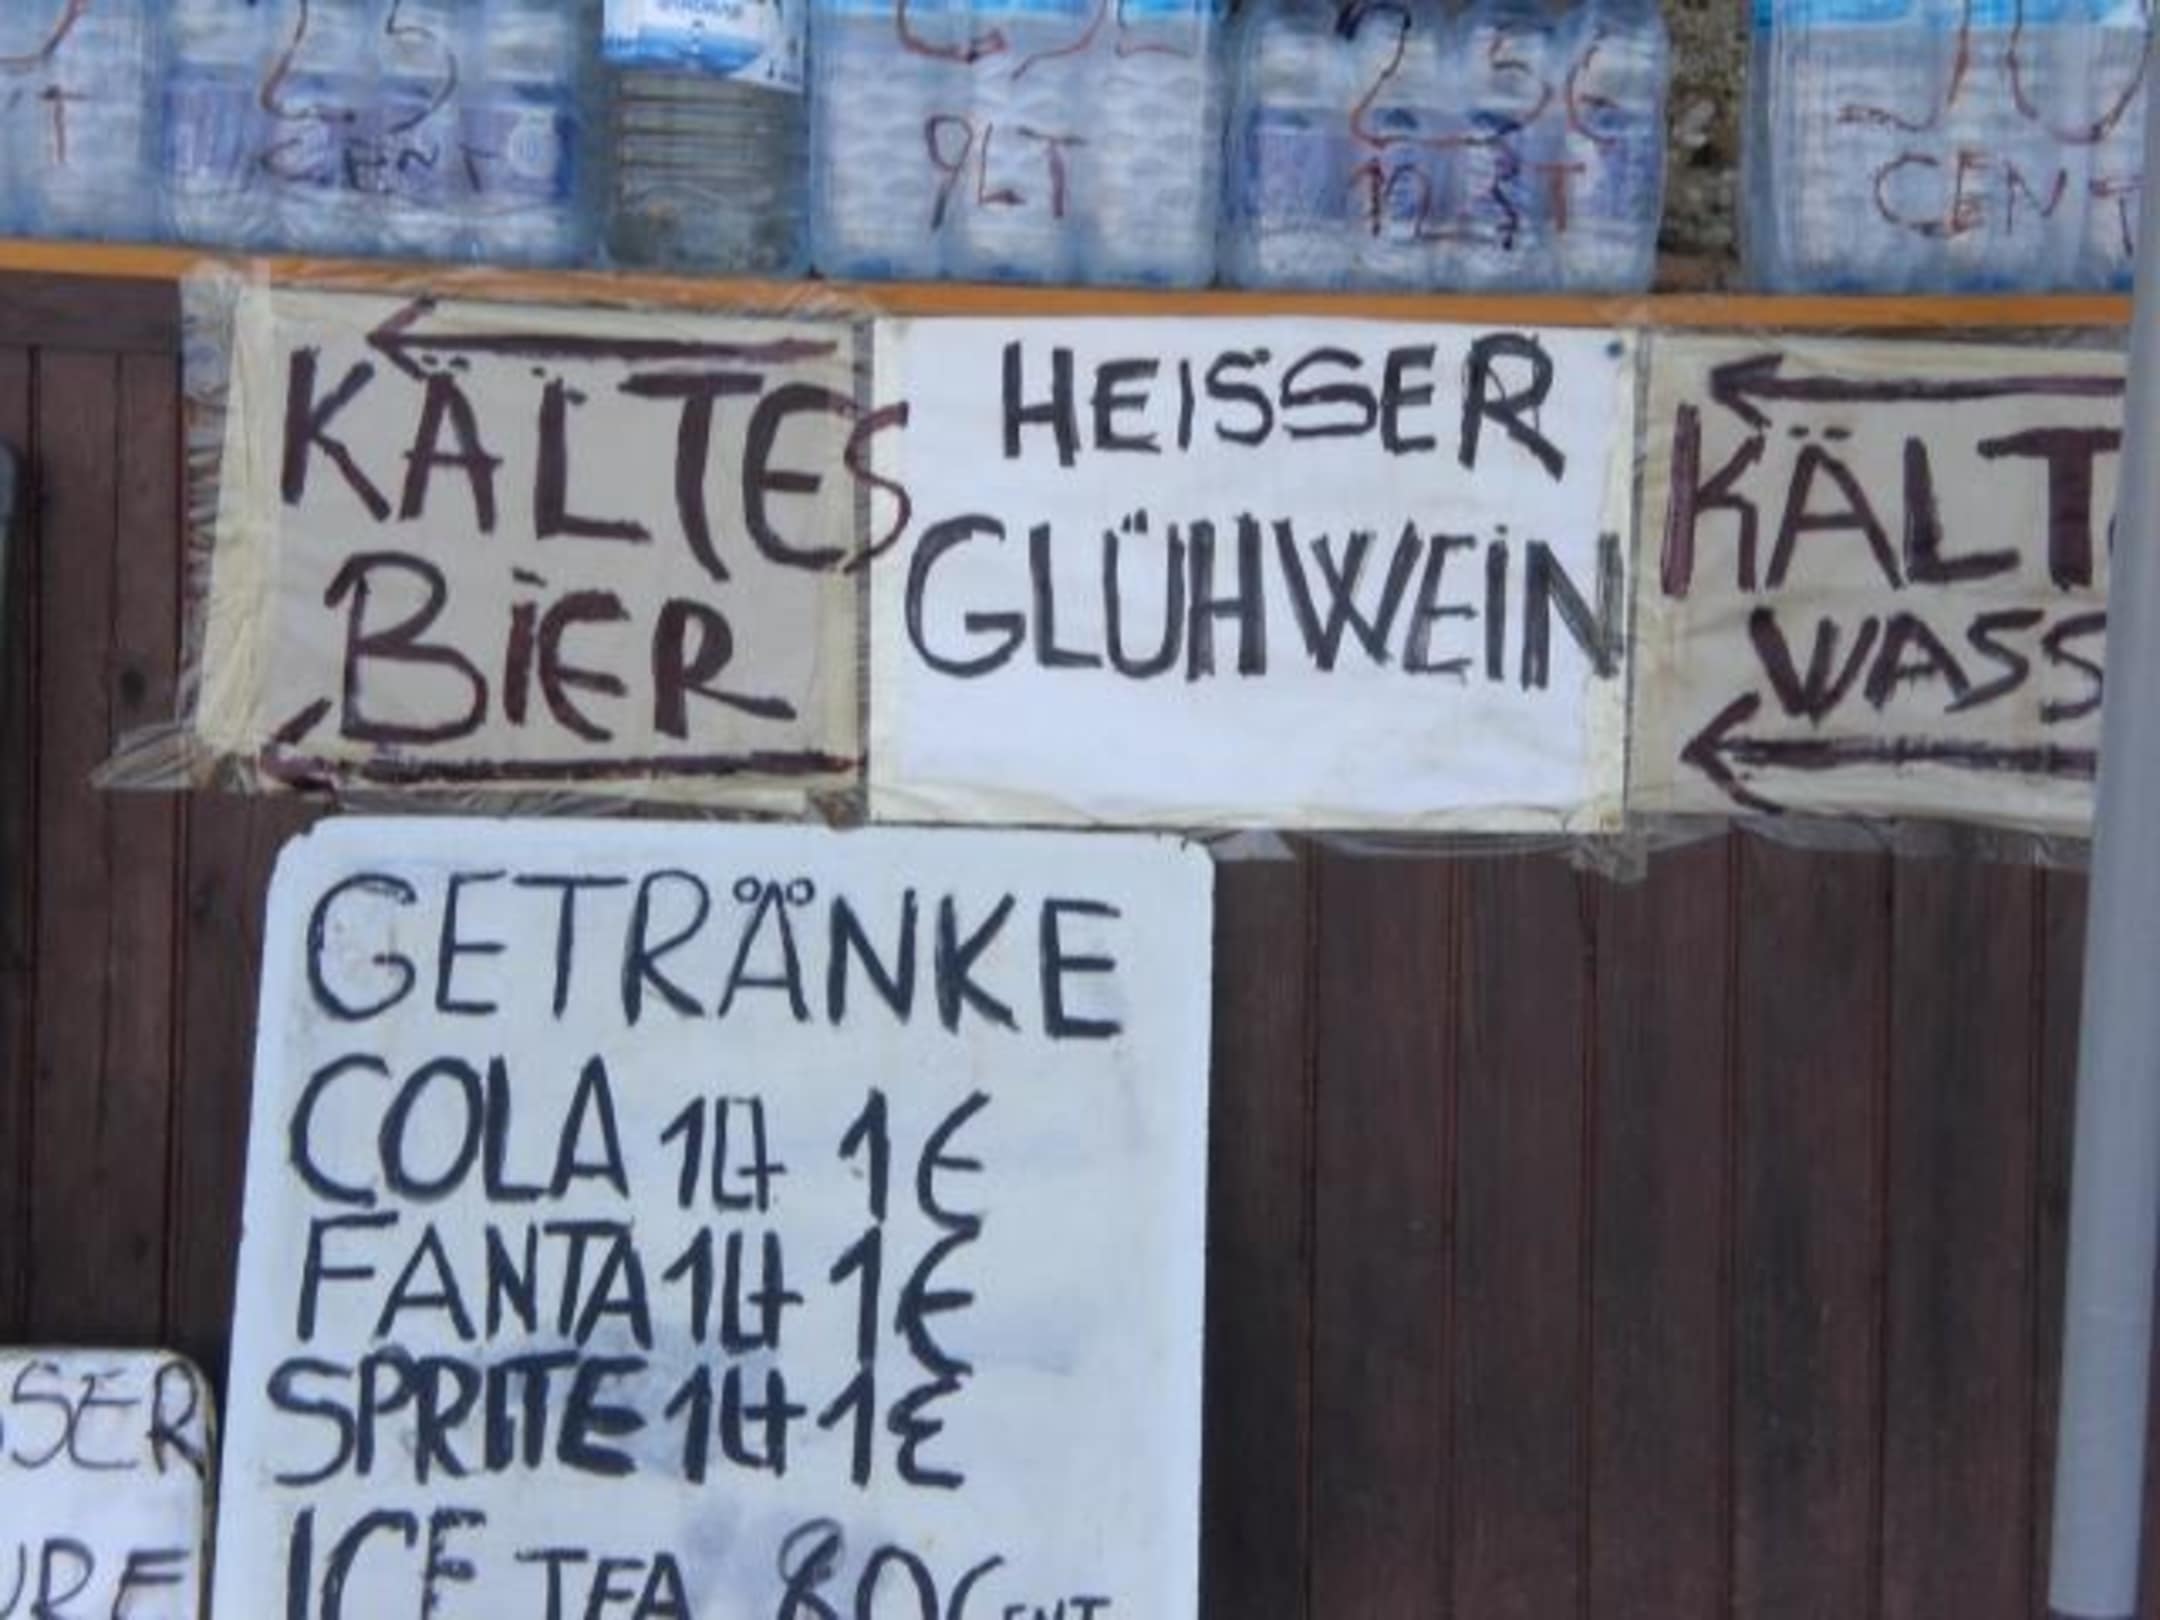 25
CENT
9LT
25€
12LT
CENT
KÄLTES
BIER
HEISSER
GLÜHWEIN
GETRÄNKE
COLA 1Lt 1€
FANTA 1Lt 1€
SPRITE 1Lt 1€
ICE TEA 80CENT